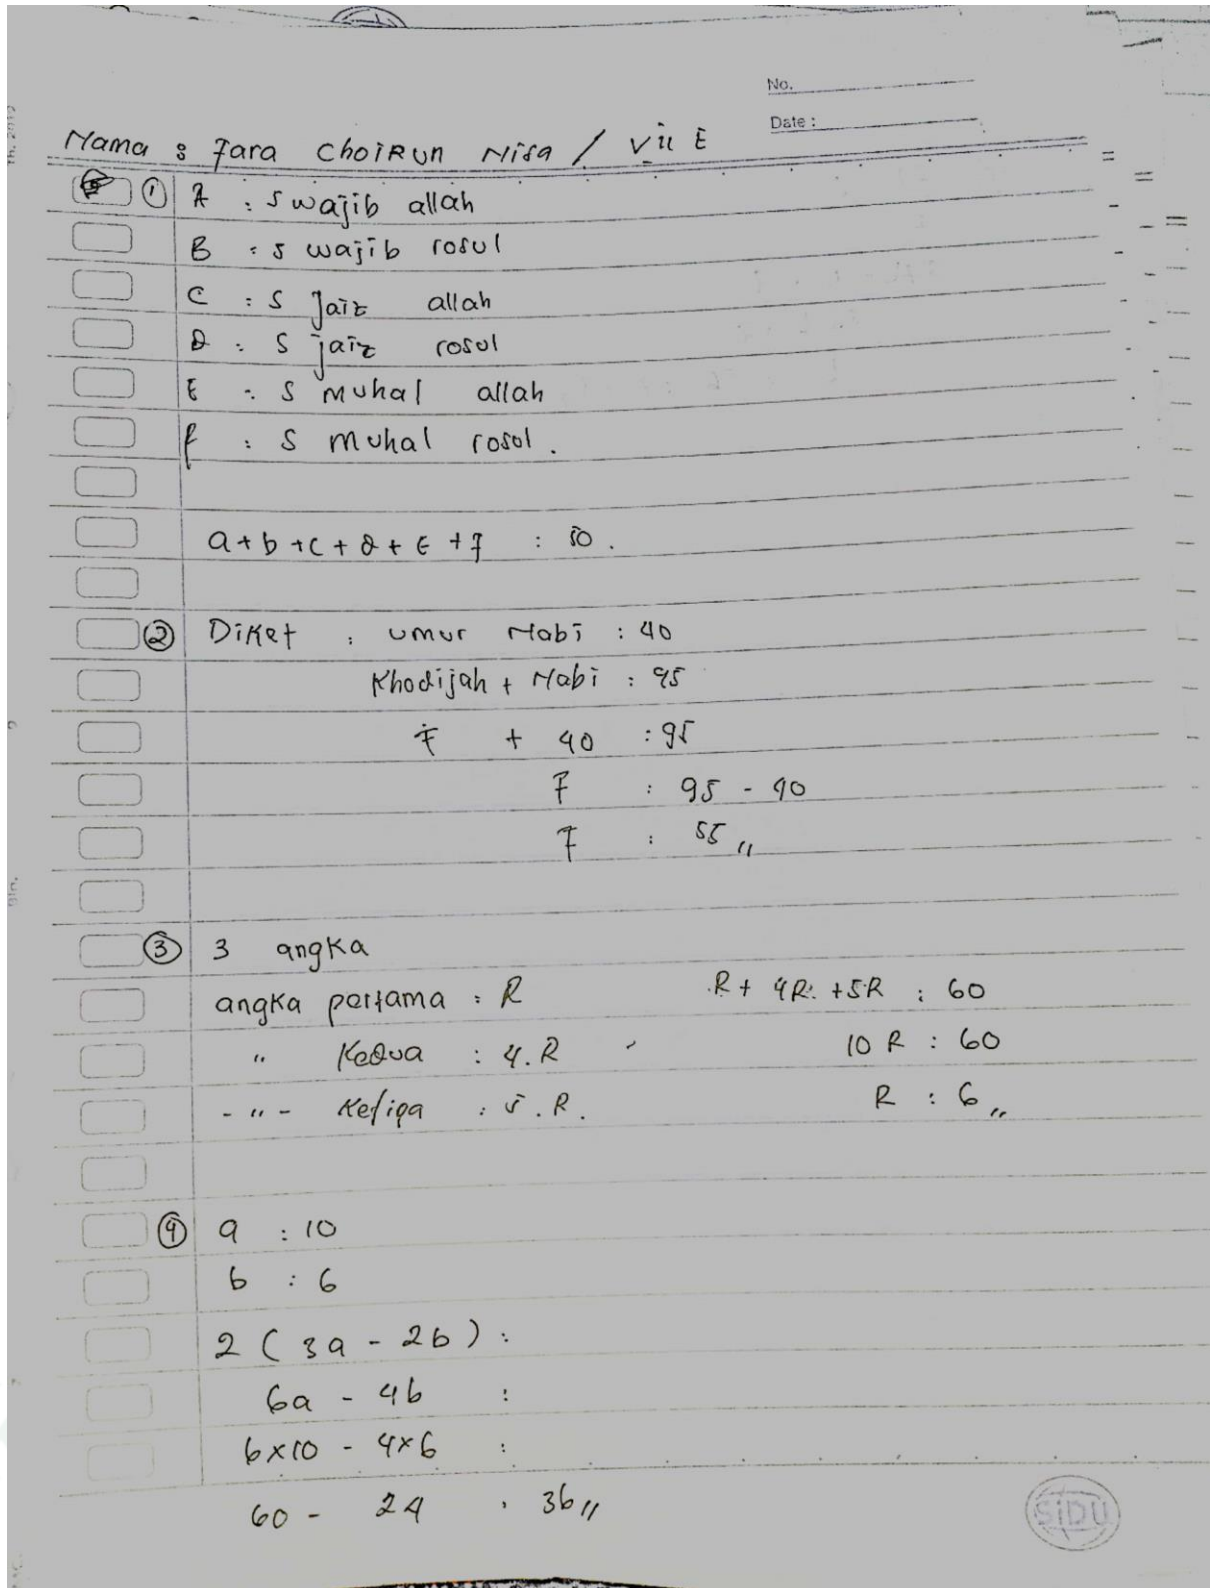 No.
Date :
Nama : Fara Choirun Nisa / VII E
① A : S wajib allah
B : S wajib rosul
C : S Jaiz allah
D : S jaiz rosul
E : S muhal allah
F : S muhal rosol.
a+b+c+d+E+f : 50.
② Diket : umur Nabi : 40
Khodijah + Nabi : 95
F + 40 : 95
F : 95 - 40
F : 55 ,,
③ 3 angka
angka pertama : R R + 4R + 5R : 60
" Kedua : 4.R 10 R : 60
- " - Ketiga : 5.R. R : 6 ,,
④ a : 10
b : 6
2 ( 3a - 2b ) :
6a - 4b :
6x10 - 4x6 :
60 - 24 : 36 ,,
SIDU